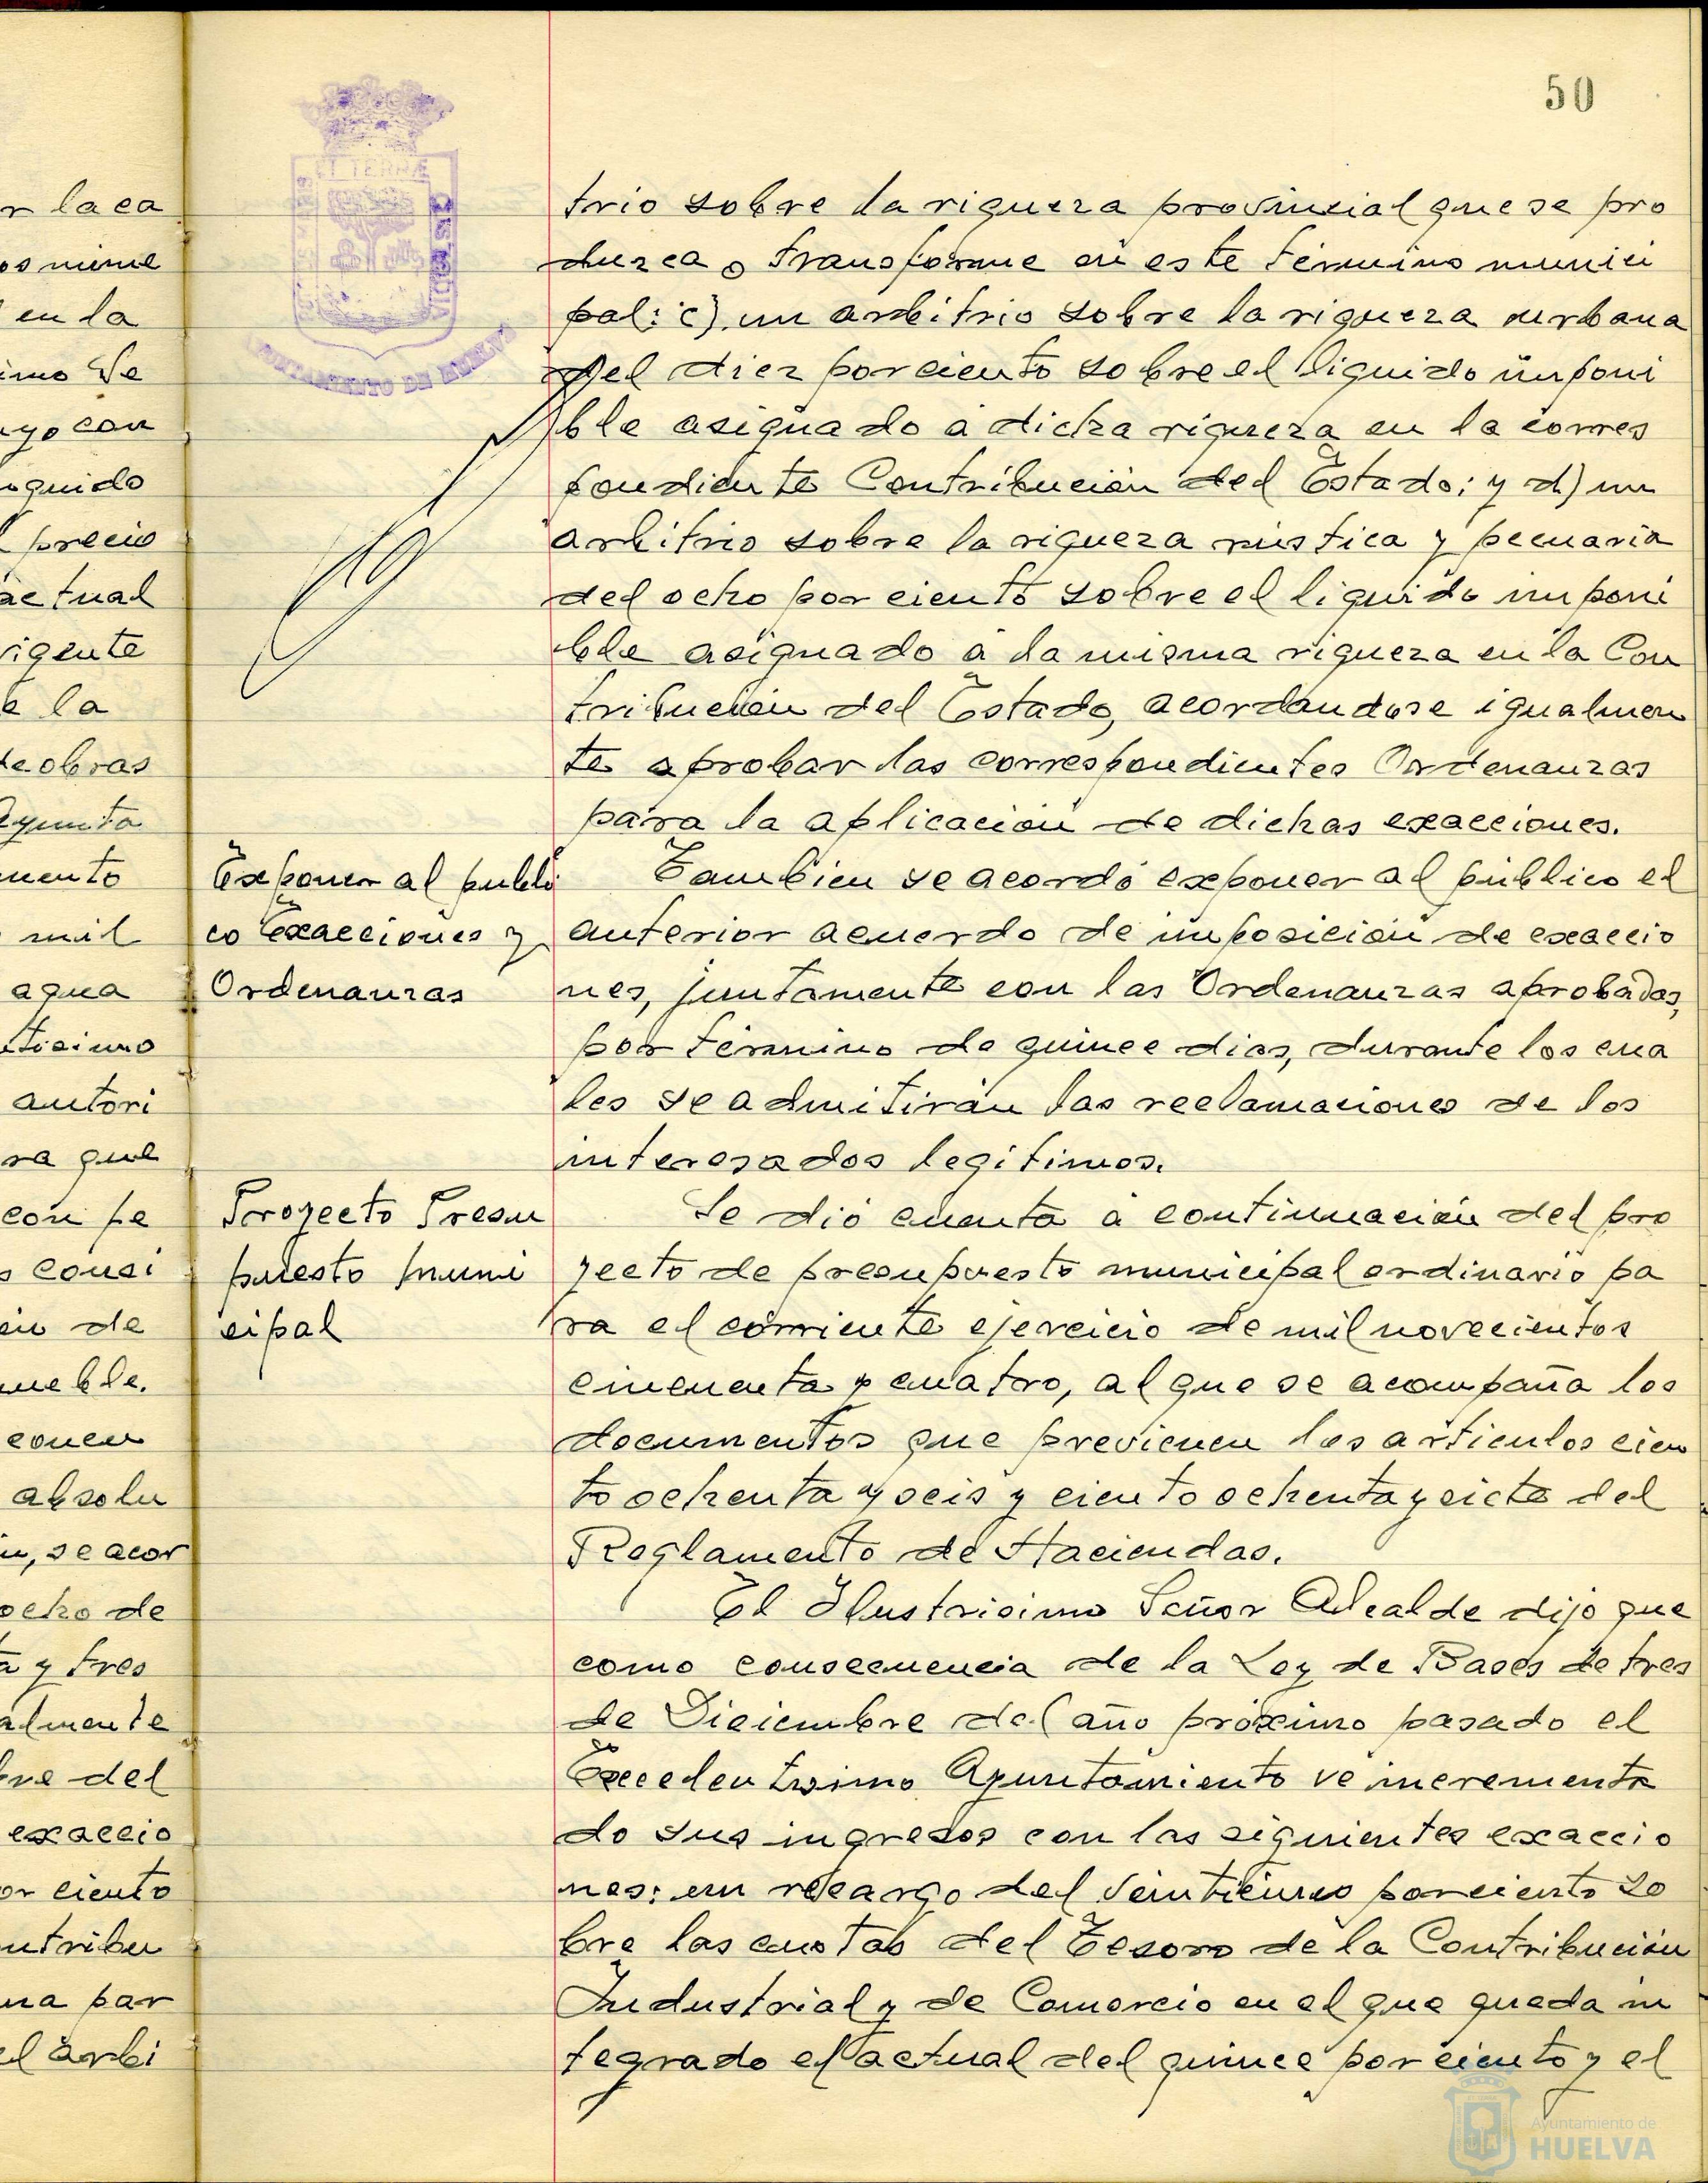 50
r la ca
os mime
en la
imo Se
ayo con
quido
precio
actual
vigente
e la
de obras
Ayunta
mento
mil
agua
autori
ra que
con pe
s consi
en de
mueble.
absolu
n, se acor
ocho de
a y tres
almente
bre del
exaccio
or ciento
ntribu
na par
el arbi
ET TERRÆ
AYUNTAMIENTO DE HUELVA
trio sobre la riqueza provincial que se pro
duzca o transforme en este término munici
pal: c), un arbitrio sobre la riqueza urbana
del diez por ciento sobre el liquido imponi
ble asignado a dicha riqueza en la corres
pondiente Contribución del Estado; y d) un
arbitrio sobre la riqueza rústica y pecuaria
del ocho por ciento sobre el liquido imponi
ble asignado a la misma riqueza en la Con
tribución del Estado, acordandose igualmen
te aprobar las correspondientes Ordenanzas
para la aplicación de dichas exacciones.
Exponer al publi
co Exacciones y
Ordenanzas
Tambien se acordó exponer al público el
anterior acuerdo de imposición de exaccio
nes, juntamente con las Ordenanzas aprobadas,
por término de quince dias, durante los cua
les se admitirán las reclamaciones de los
interesados legitimos.
Proyecto Presu
puesto muni
cipal
Se dió cuenta a continuación del pro
yecto de presupuesto municipal ordinario pa
ra el corriente ejercicio de mil novecientos
cincuenta y cuatro, al que se acompaña los
documentos que previenen los articulos cien
to ochenta y seis y ciento ochenta y siete del
Reglamento de Haciendas.
El Ilustrisimo Señor Alcalde dijo que
como consecuencia de la Ley de Bases de tres
de Diciembre del año próximo pasado el
Excelentisimo Ayuntamiento ve incrementa
do sus ingresos con las siguientes exaccio
nes: un recargo del veinticinco por ciento so
bre las cuotas del Tesoro de la Contribución
Industrial y de Comercio en el que queda in
tegrado el actual del quince por ciento y el
Ayuntamiento de
HUELVA